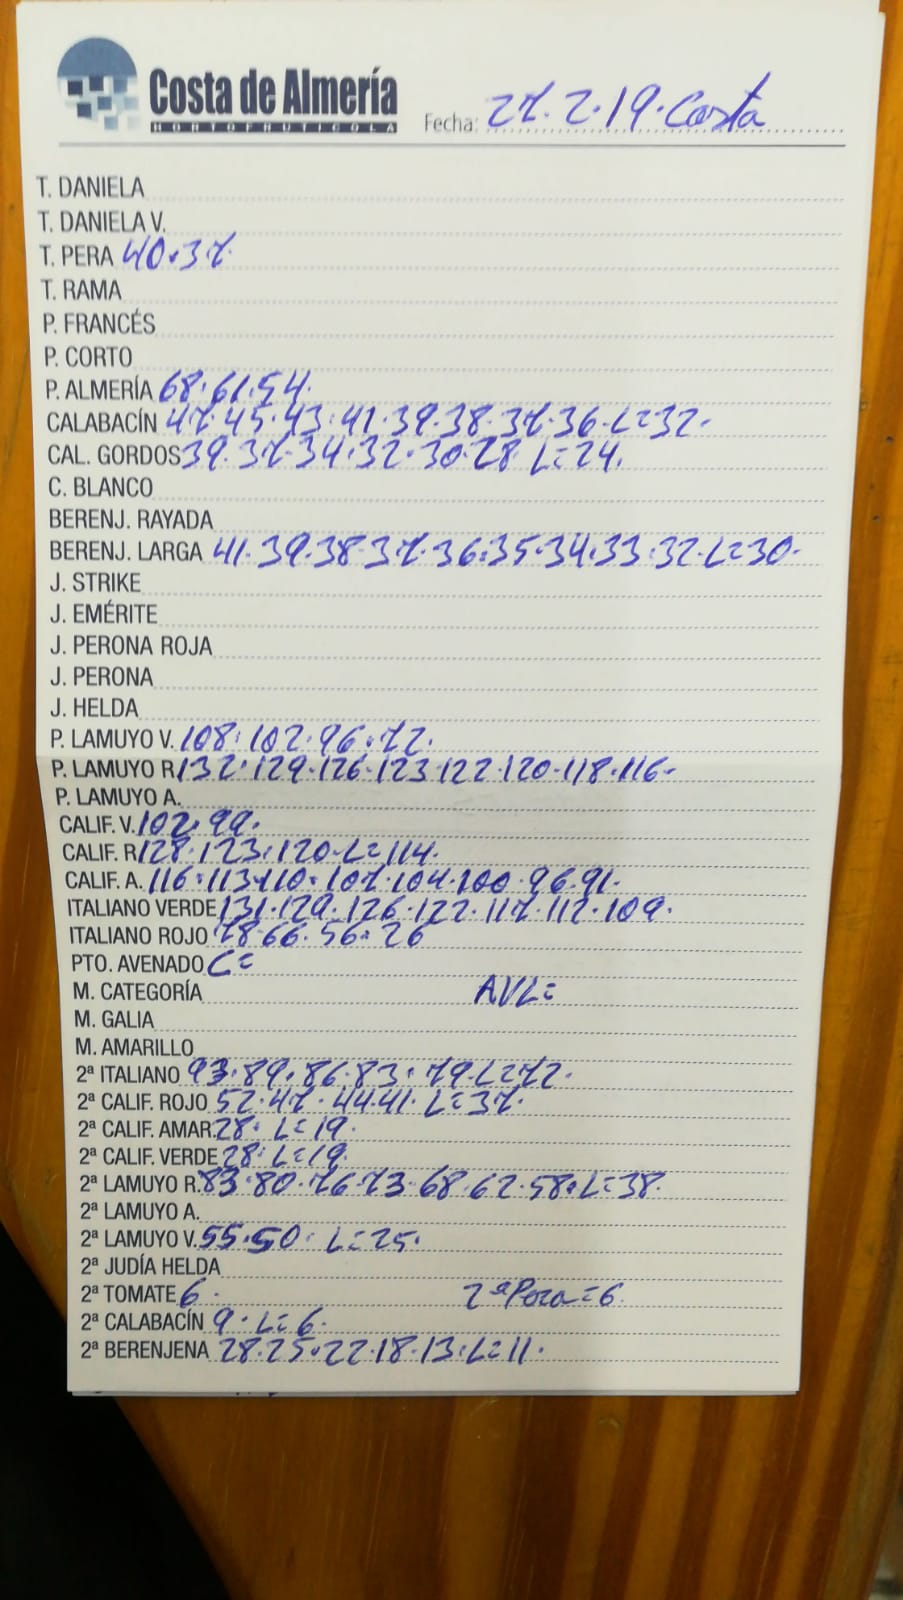 Costa de Almería
HORTOFRUTICOLA
Fecha: 27.2.19. Costa
T. DANIELA
T. DANIELA V.
T. PERA 40.37
T. RAMA
P. FRANCÉS
P. CORTO
P. ALMERÍA 68.61.54.
CALABACÍN 47.45.43.41.39.38.37.36.L=32.
CAL. GORDOS 39.37.34.32.30.28 L=24.
C. BLANCO
BERENJ. RAYADA
BERENJ. LARGA 41.39.38.37.36.35.34.33.32.L=30.
J. STRIKE
J. EMÉRITE
J. PERONA ROJA
J. PERONA
J. HELDA
P. LAMUYO V. 108.102.96.72.
P. LAMUYO R. 132.129.126.123.122.120.118.116.
P. LAMUYO A.
CALIF. V. 102.99.
CALIF. R. 128.123.120.L=114.
CALIF. A. 116.113.110.107.104.100.96.91.
ITALIANO VERDE 131.129.126.122.117.112.109.
ITALIANO ROJO 78.66.56.26
PTO. AVENADO C=
M. CATEGORÍA AVL=
M. GALIA
M. AMARILLO
2ª ITALIANO 93.89.86.83.79.L=72.
2ª CALIF. ROJO 52.47.44.41.L=37.
2ª CALIF. AMAR. 28. L=19.
2ª CALIF. VERDE 28. L=19.
2ª LAMUYO R. 83.80.76.73.68.62.58.L=38.
2ª LAMUYO A.
2ª LAMUYO V. 55.50. L=25.
2ª JUDÍA HELDA
2ª TOMATE 6. 2ª Pera=6.
2ª CALABACÍN 9. L=6.
2ª BERENJENA 28.25.22.18.13.L=11.